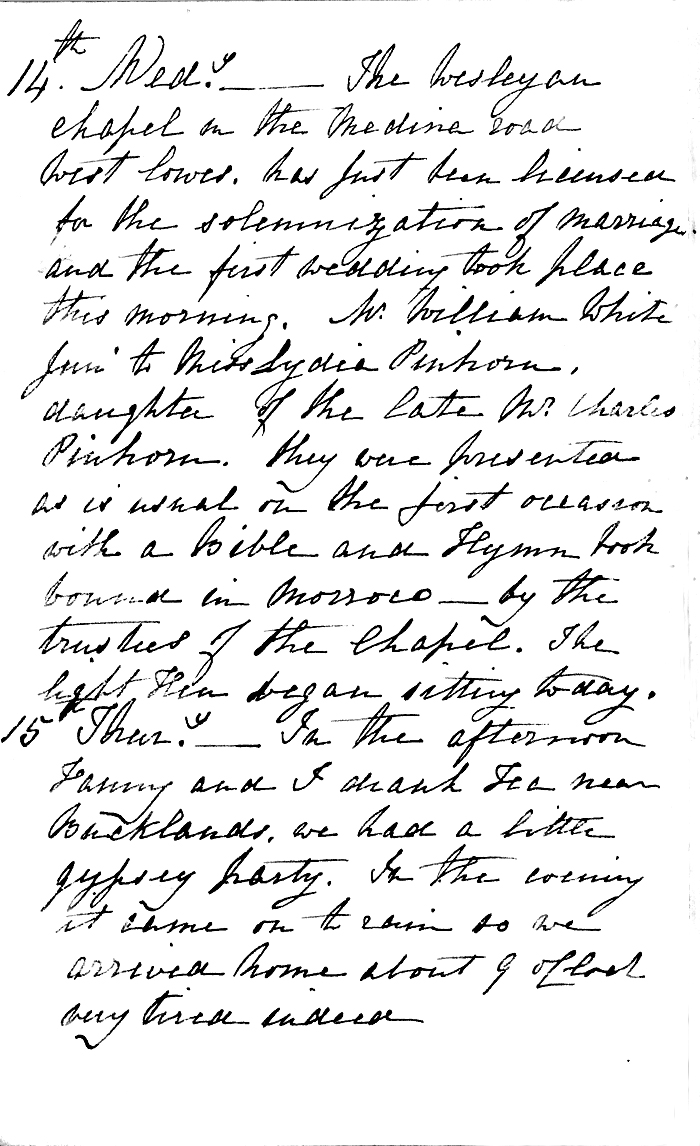 14th. Wedy. —— The Wesleyan
chapel in the Medina road
West Cowes. has just been licensed
for the solemnization of marriage.
and the first wedding took place
this morning. Mr. William White
Junr to Miss Lydia Pinhorn.
daughter of the late Mr. Charles
Pinhorn. they were presented
as is usual on the first occasion
with a Bible and Hymn book
bound in Morroco — by the
trustees of the Chapel. The
light Hen began sitting today.
15th Thury. — In the afternoon
Fanny and I drank Tea near
Bucklands. we had a little
gypsey party. In the evening
it came on to rain so we
arrived home about 9 oClock
very tired indeed